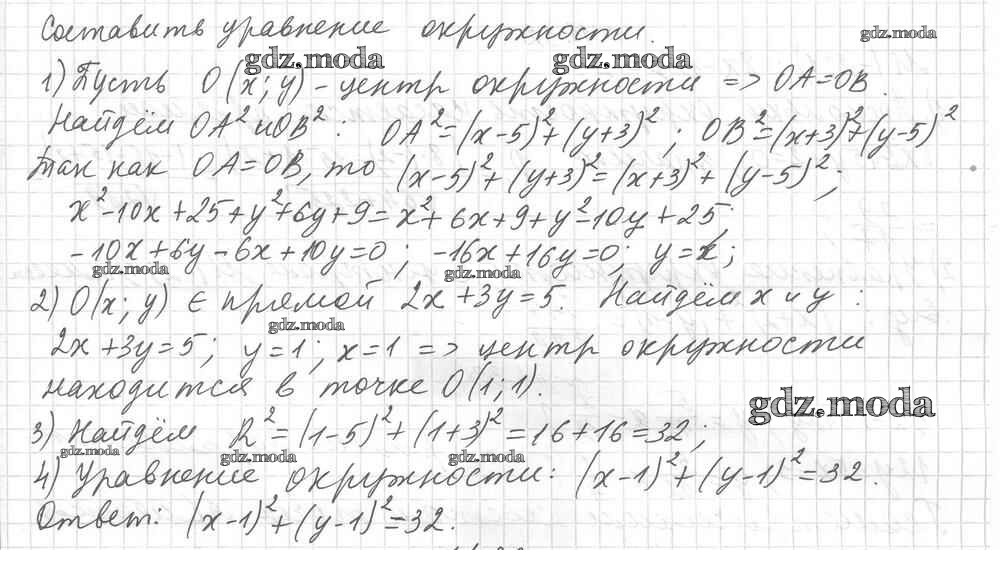 Составить уравнение окружности.
gdz.moda
gdz.moda gdz.moda
1) Пусть O(x; y) – центр окружности => OA=OB.
Найдём OA² и OB²: OA²=(x-5)²+(y+3)²; OB²=(x+3)²+(y-5)²
Так как OA=OB, то (x-5)²+(y+3)²=(x+3)²+(y-5)²;
x²-10x+25+y²+6y+9=x²+6x+9+y²-10y+25;
-10x+6y-6x+10y=0; -16x+16y=0; y=x;
gdz.moda gdz.moda
2) O(x; y) ∈ прямой 2x+3y=5. Найдём x и y:
gdz.moda
2x+3y=5; y=1; x=1 => центр окружности
находится в точке O(1;1).
gdz.moda
3) Найдём R²=(1-5)²+(1+3)²=16+16=32;
gdz.moda gdz.moda gdz.moda
4) Уравнение окружности: (x-1)²+(y-1)²=32.
Ответ: (x-1)²+(y-1)²=32.